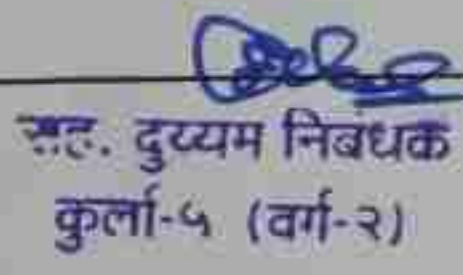 सह. दुय्यम निबंधक
कुर्ला-५ (वर्ग-२)